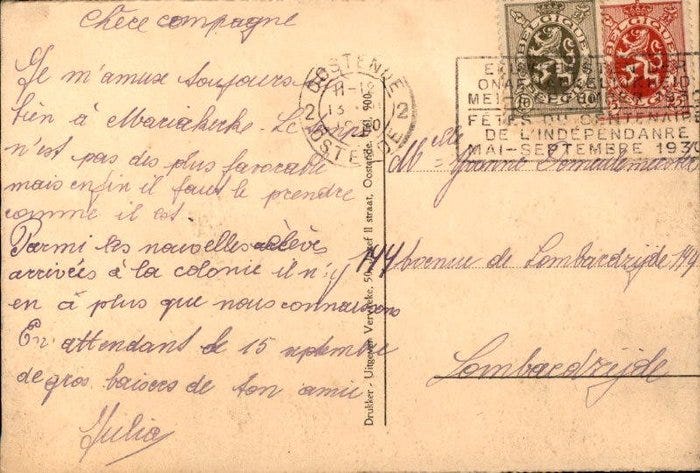 Chère compagne
Je m'amuse toujours
bien à Mariakerke. Le temps
n'est pas des plus favorable
mais enfin il faut le prendre
comme il est.
Parmi les nouvelles élèves
arrivées à la colonie il n'y
en a plus que nous connaissons
En attendant le 15 septembre
de gros baisers de ton amie
Julia
Drukker - Uitgever Verbeke, 50, Jozef II straat, Oostende Tel. 900
OOSTENDE
11-12
13
2 2
OSTENDE
BELGIQUE
BELGIQUE
FÊTES DU CENTENAIRE
DE L'INDÉPENDANRE
MAI-SEPTEMBRE 1930
Mlle Yvonne
144 Avenue de Lombardzijde 194
Lombardzijde